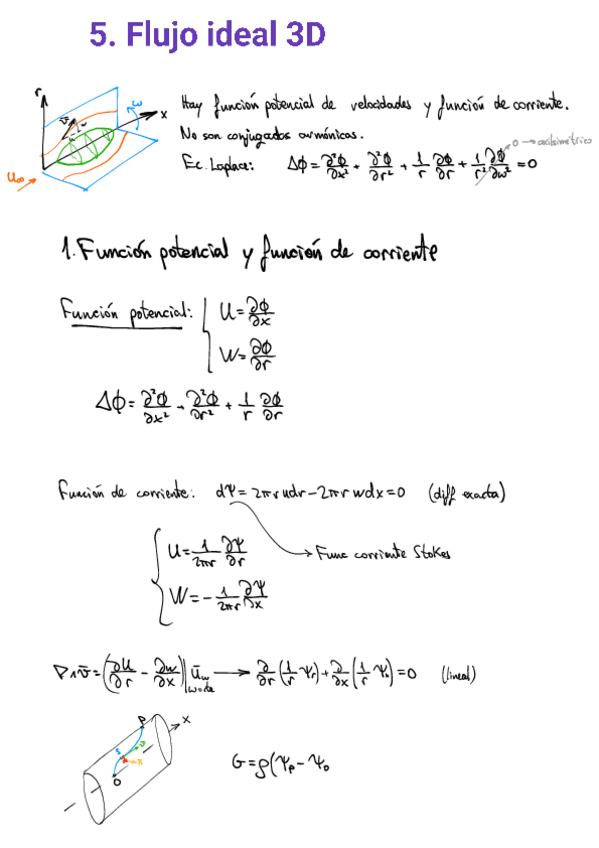 5. Flujo ideal 3D
r
ω
x
U∞
Hay función potencial de velocidades y función de corriente.
No son conjugados armónicos.
Ec. Laplace: Δϕ = ∂²ϕ/∂x² + ∂²ϕ/∂r² + 1/r ∂ϕ/∂r + 1/r² ∂²ϕ/∂ω² = 0
0 → axilsimétrico
1. Función potencial y función de corriente
Función potencial: { U = ∂ϕ/∂x
W = ∂ϕ/∂r
Δϕ = ∂²ϕ/∂x² + ∂²ϕ/∂r² + 1/r ∂ϕ/∂r
Función de corriente: dΨ = 2πr u dr − 2πr w dx = 0 (diff exacta)
{ U = 1/2πr ∂Ψ/∂r
→ Func corriente Stokes
W = − 1/2πr ∂Ψ/∂x
∇∧v̄ = (∂U/∂r − ∂w/∂x) ū_w → ∂/∂r (1/r Ψr) + ∂/∂x (1/r Ψx) = 0 (lineal)
P
x
O
G = ρ(Ψp − Ψo